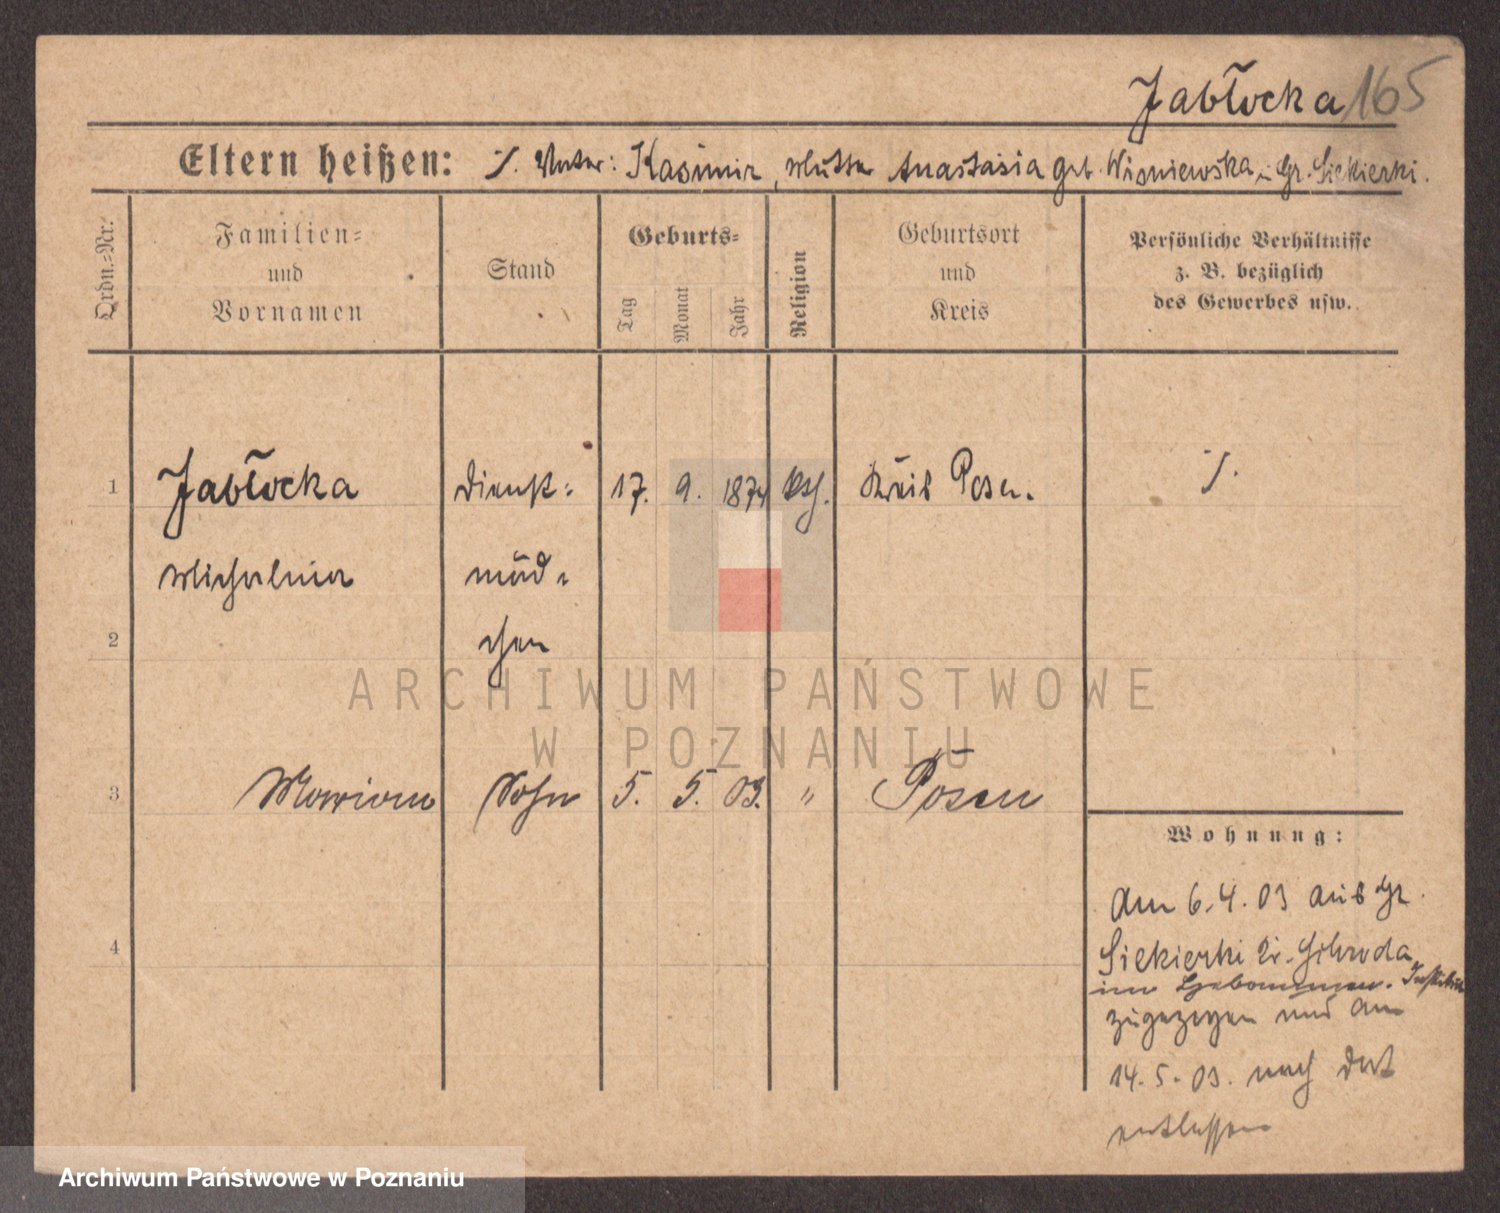 Jabłocka 165
Eltern heißen: ·/. Vater: Kasimir, Mutter Anastasia geb. Wisniewska in Gr. Siekierki.
Ordn.-Nr.
Familien-
und
Vornamen
Stand
Geburts-
Tag
Monat
Jahr
Religion
Geburtsort
und
Kreis
Persönliche Verhältnisse
z. B. bezüglich
des Gewerbes usw.
1 Jabłocka Dienst- 17. 9. 1874 kth. Kreis Posen. ·/.
Michalina mäd-
2 chen
ARCHIWUM PAŃSTWOWE
W POZNANIU
3 Marian Sohn 5. 5. 03. " Posen
Wohnung:
Am 6.4.03 aus Gr.
4 Siekierki Kr. Schroda
im Hebammen-Institut
zugezogen und am
14.5.03. nach dort
entlassen
Archiwum Państwowe w Poznaniu